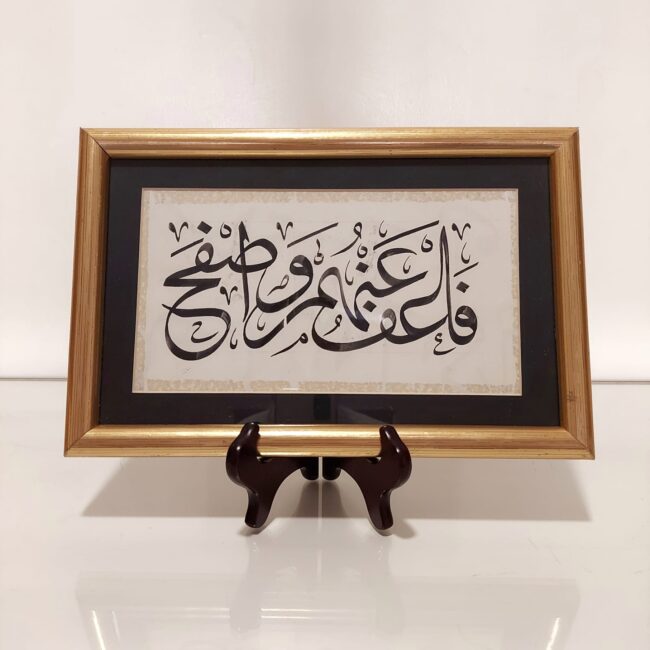 فاعف عنهم واصفح